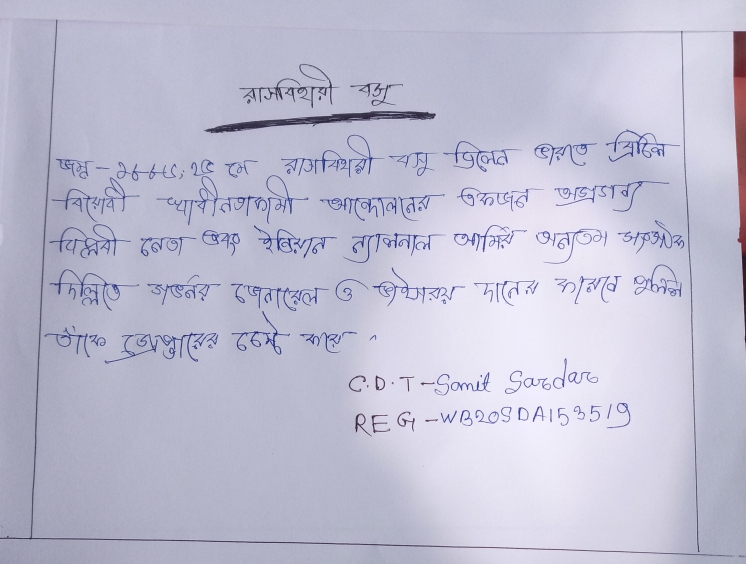 রাসবিহারী বসু
জন্ম - ১৮৮৬; ২৫ মে রাসবিহারী বসু ছিলেন ভারতে ব্রিটিশ
বিরোধী স্বাধীনতাকামী আন্দোলনের একজন অগ্রগণ্য
বিপ্লবী নেতা এবং ইন্ডিয়ান ন্যাশনাল আর্মির অন্যতম সংগঠক
দিল্লিতে গভর্নর জেনারেল ও ভাইসরয় কারনে পুলিশ
তাঁকে গ্রেপ্তারের চেষ্টা করে
C.D.T - Somit Sardar
REG - WB20SDA153519